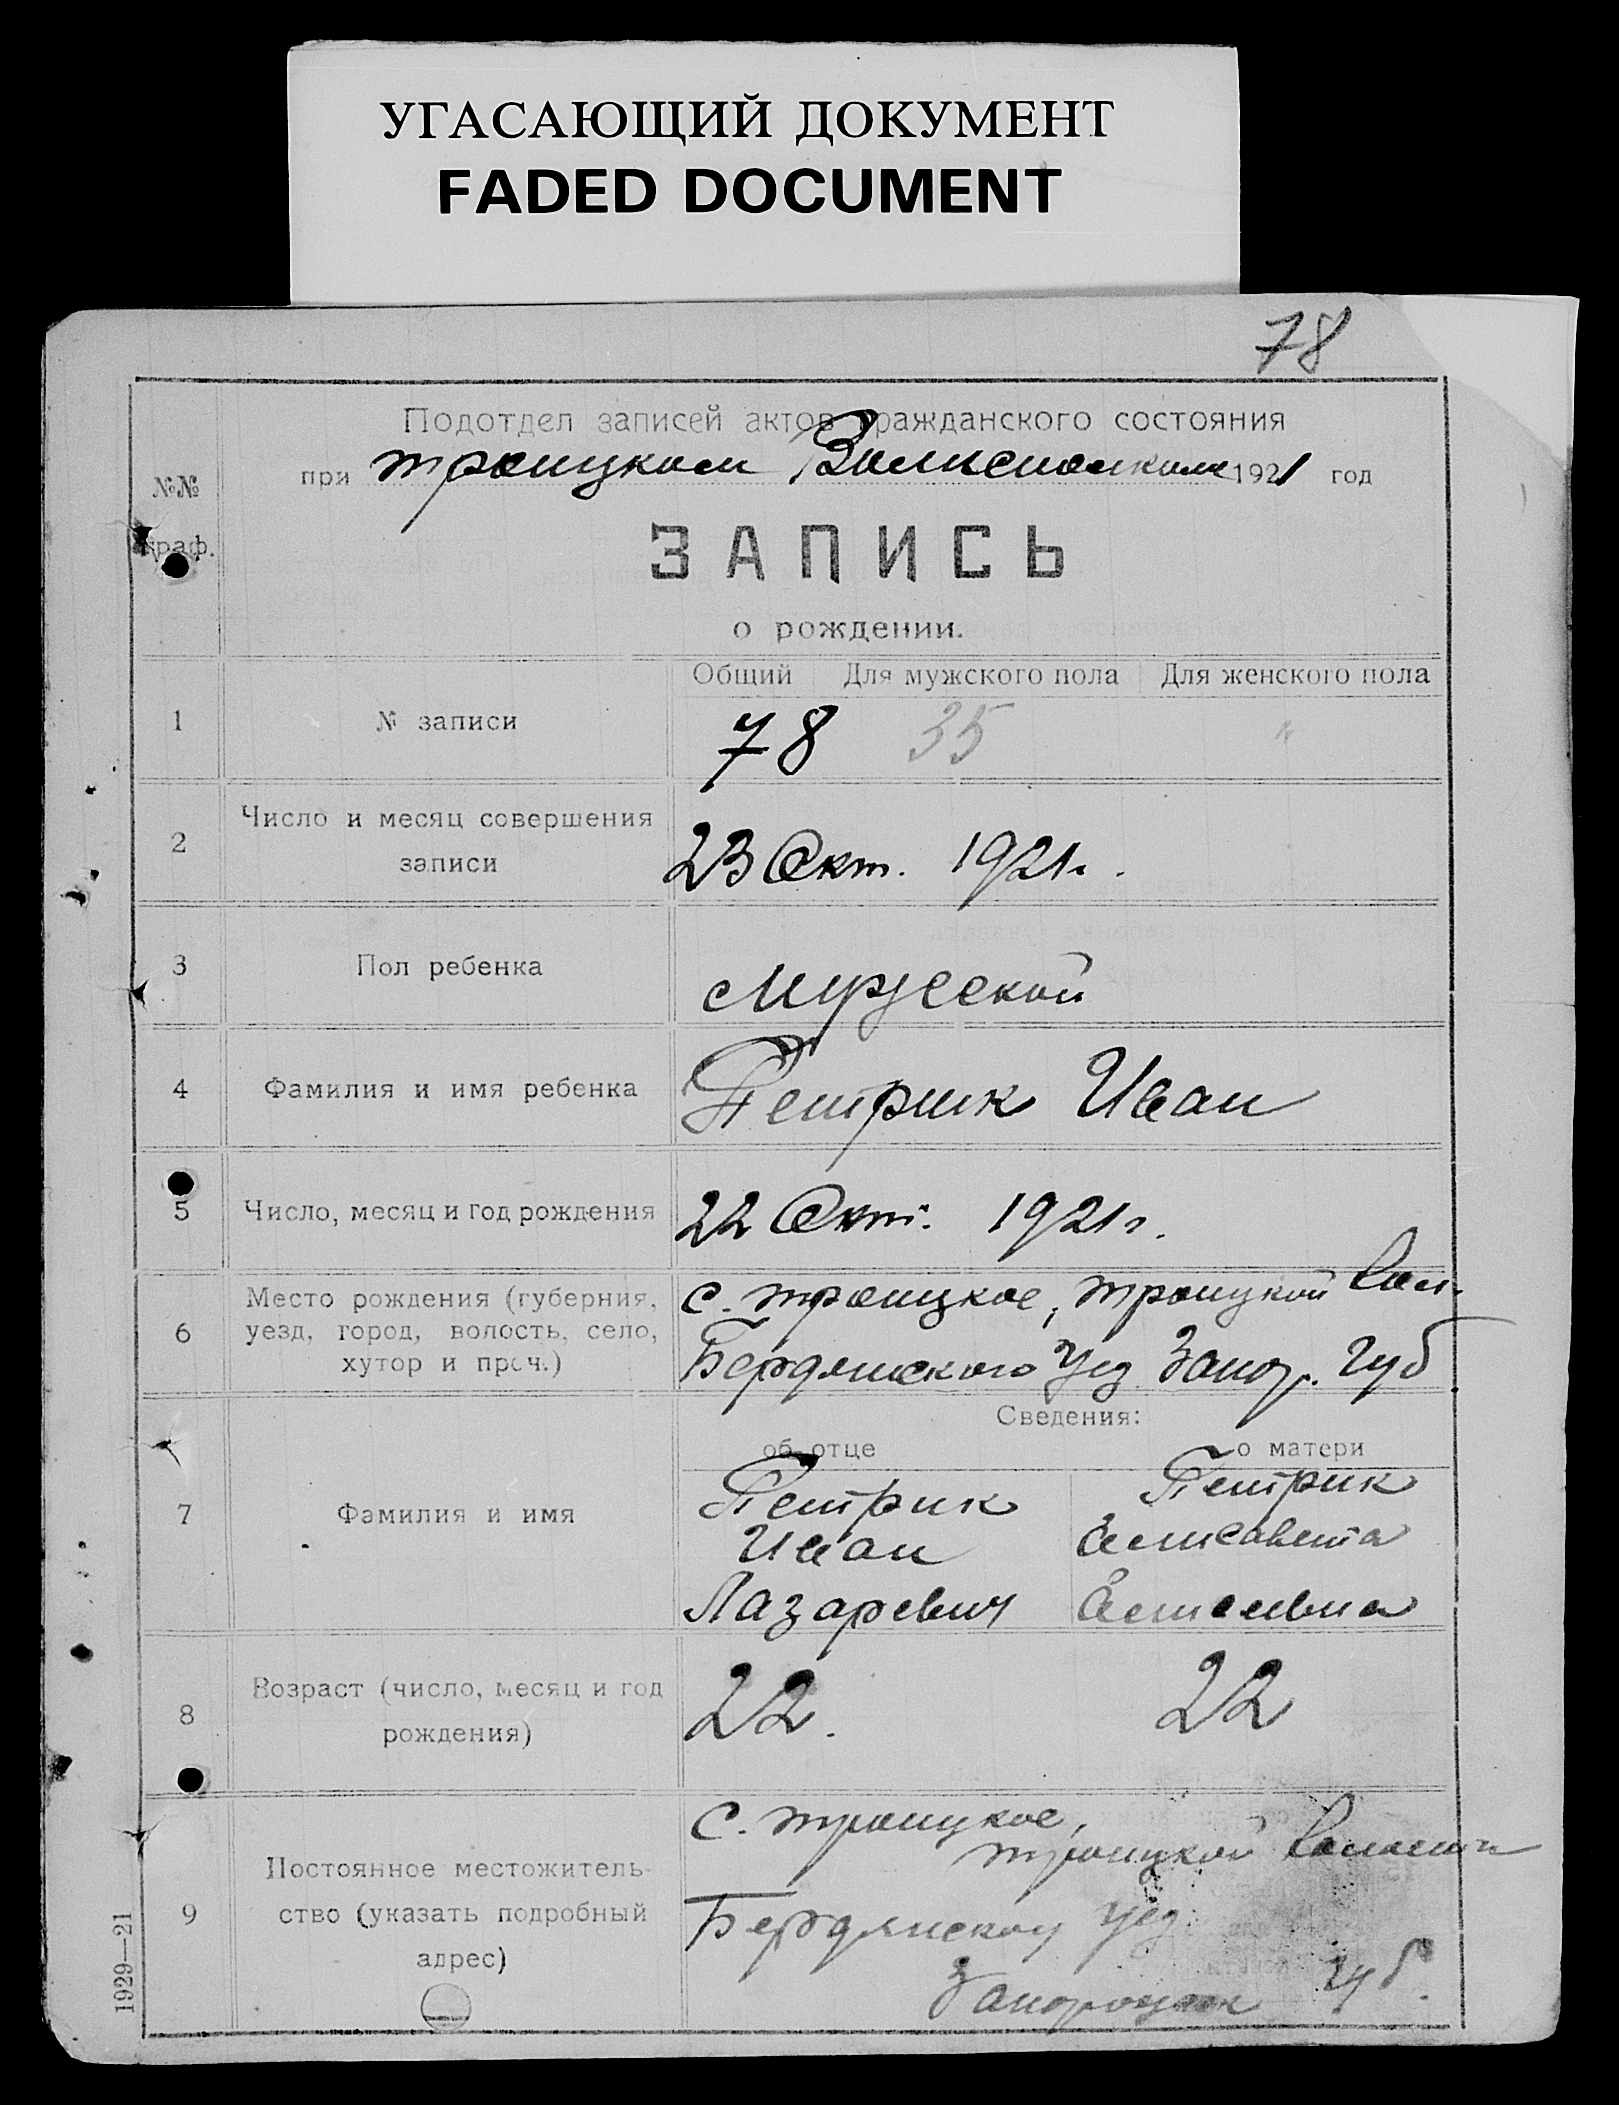 УГАСАЮЩИЙ ДОКУМЕНТ
FADED DOCUMENT
78
Подотдел записей актов гражданского состояния
при Троицком Волисполкоме 1921 год
№№
граф.
ЗАПИСЬ
о рождении.
Общий Для мужского пола Для женского пола
1 № записи 78 35 "
2 Число и месяц совершения
записи
23 Окт. 1921г.
3 Пол ребенка Мужеской
4 Фамилия и имя ребенка Петрик Иван
5 Число, месяц и год рождения 22 Окт. 1921г.
6 Место рождения (губерния,
уезд, город, волость, село,
хутор и проч.)
с. Троицкое, Троицкой Вол.
Бердянского Уез. Запор. Губ
Сведения:
об отце о матери
7 Фамилия и имя
Петрик
Иван
Лазаревич
Петрик
Елисавета
8 Возраст (число, месяц и год
рождения)
22. 22
9 Постоянное местожитель-
ство (указать подробный
адрес)
с. Троицкое,
Троицкой Волости
Бердянског Уез.
Губ.
1929—21